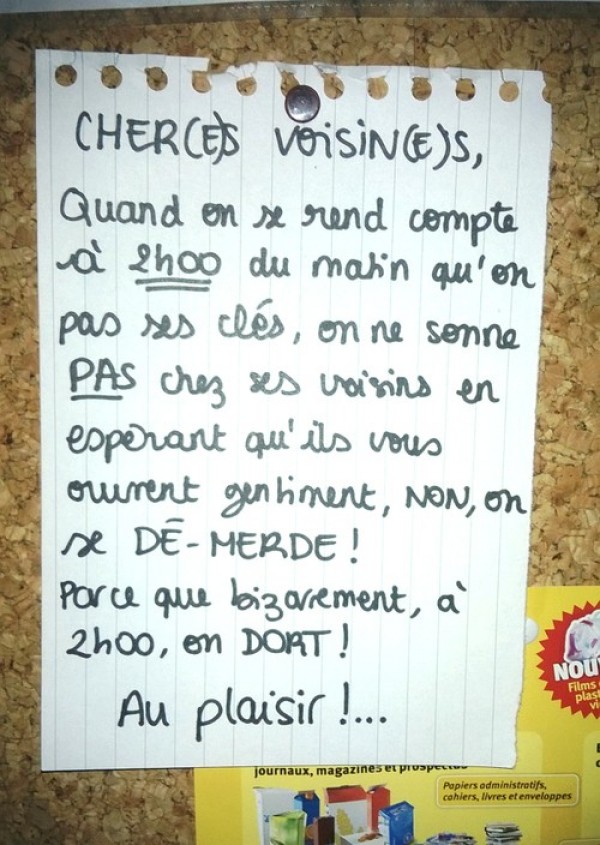 CHER(E)S VOISIN(E)S,
Quand on se rend compte
à 2h00 du matin qu'on
pas ses clés, on ne sonne
PAS chez ses voisins en
espérant qu'ils vous
ouvrent gentiment, NON, on
se DÉ-MERDE !
Parce que bizarement, à
2h00, on DORT !
Au plaisir !...
NOU
Films
plas
vi
journaux, magazines et prospectus
Papiers administratifs,
cahiers, livres et enveloppes